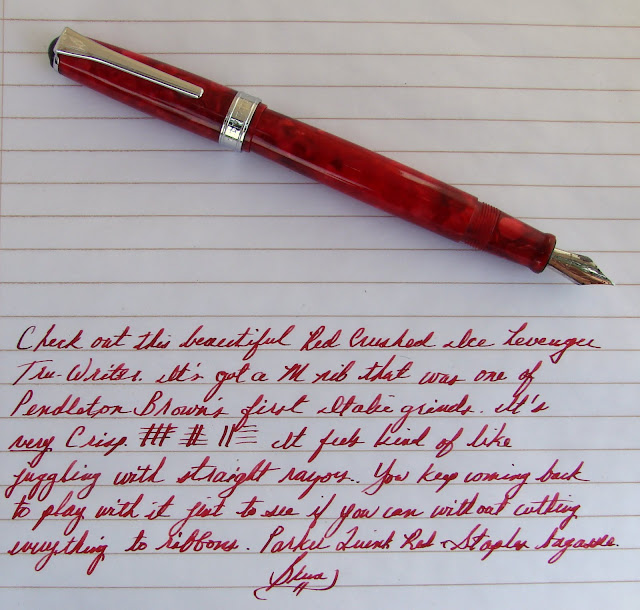 Check out this beautiful Red Crushed Ice Levenger
Tru-Writer. It's got a M nib that was one of
Pendleton Brown's first Italic grinds. It's
very Crisp. It feels kind of like
juggling with straight razors.. You keep coming back
to play with it just to see if you can without cutting
everything to ribbons. Parker Quink Red - Staples bagasse.